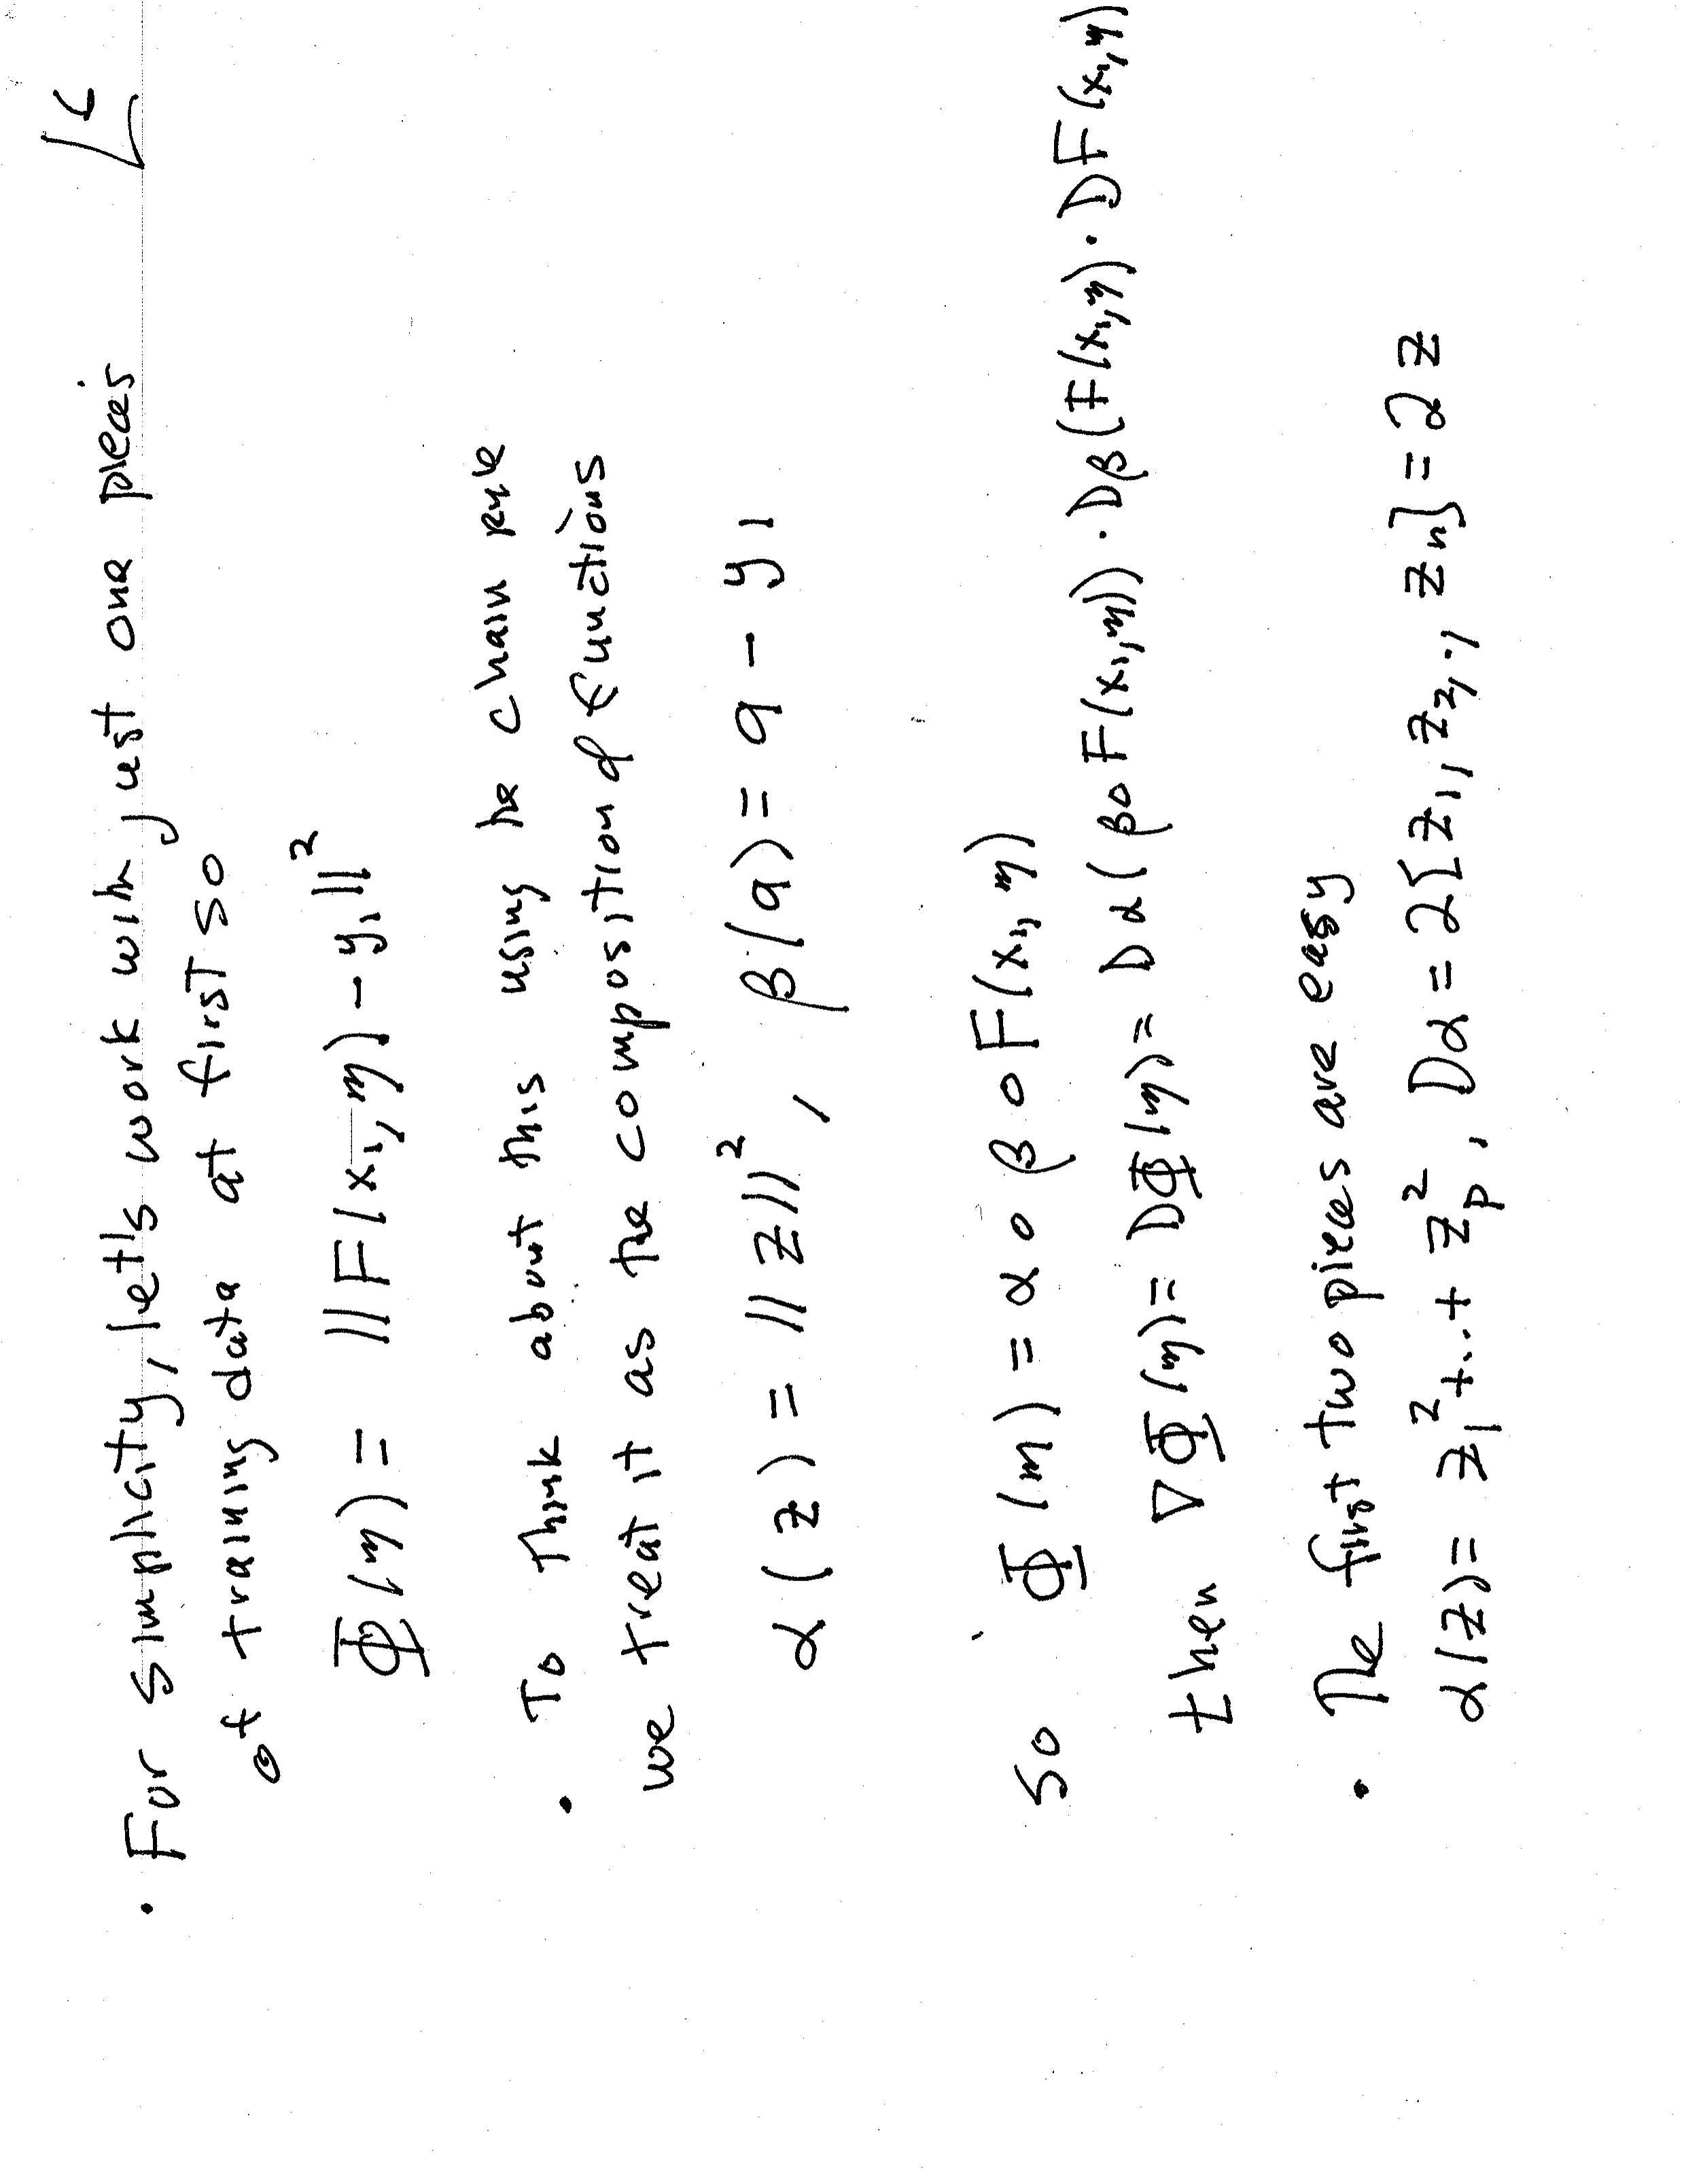 • For simplicity, let's work with just one pieces
of training data at first so
Φ(η) = ||F(x₁,η) - y₁||²
• To think about this using the chain rule
we treat it as the composition of functions
α(z) = ||z||², β(a) = a - y₁
so Φ(η) = α∘β∘F(x₁,η)
then ∇Φ(η) = DΦ(η) = Dα(β∘F(x₁,η)) · Dβ(F(x₁,η) · DF(x₁,η)
• The first two pieces are easy
α(z) = z₁² + ... + z_p², Dα = 2[z₁, z₂, .., z_n] = 2z